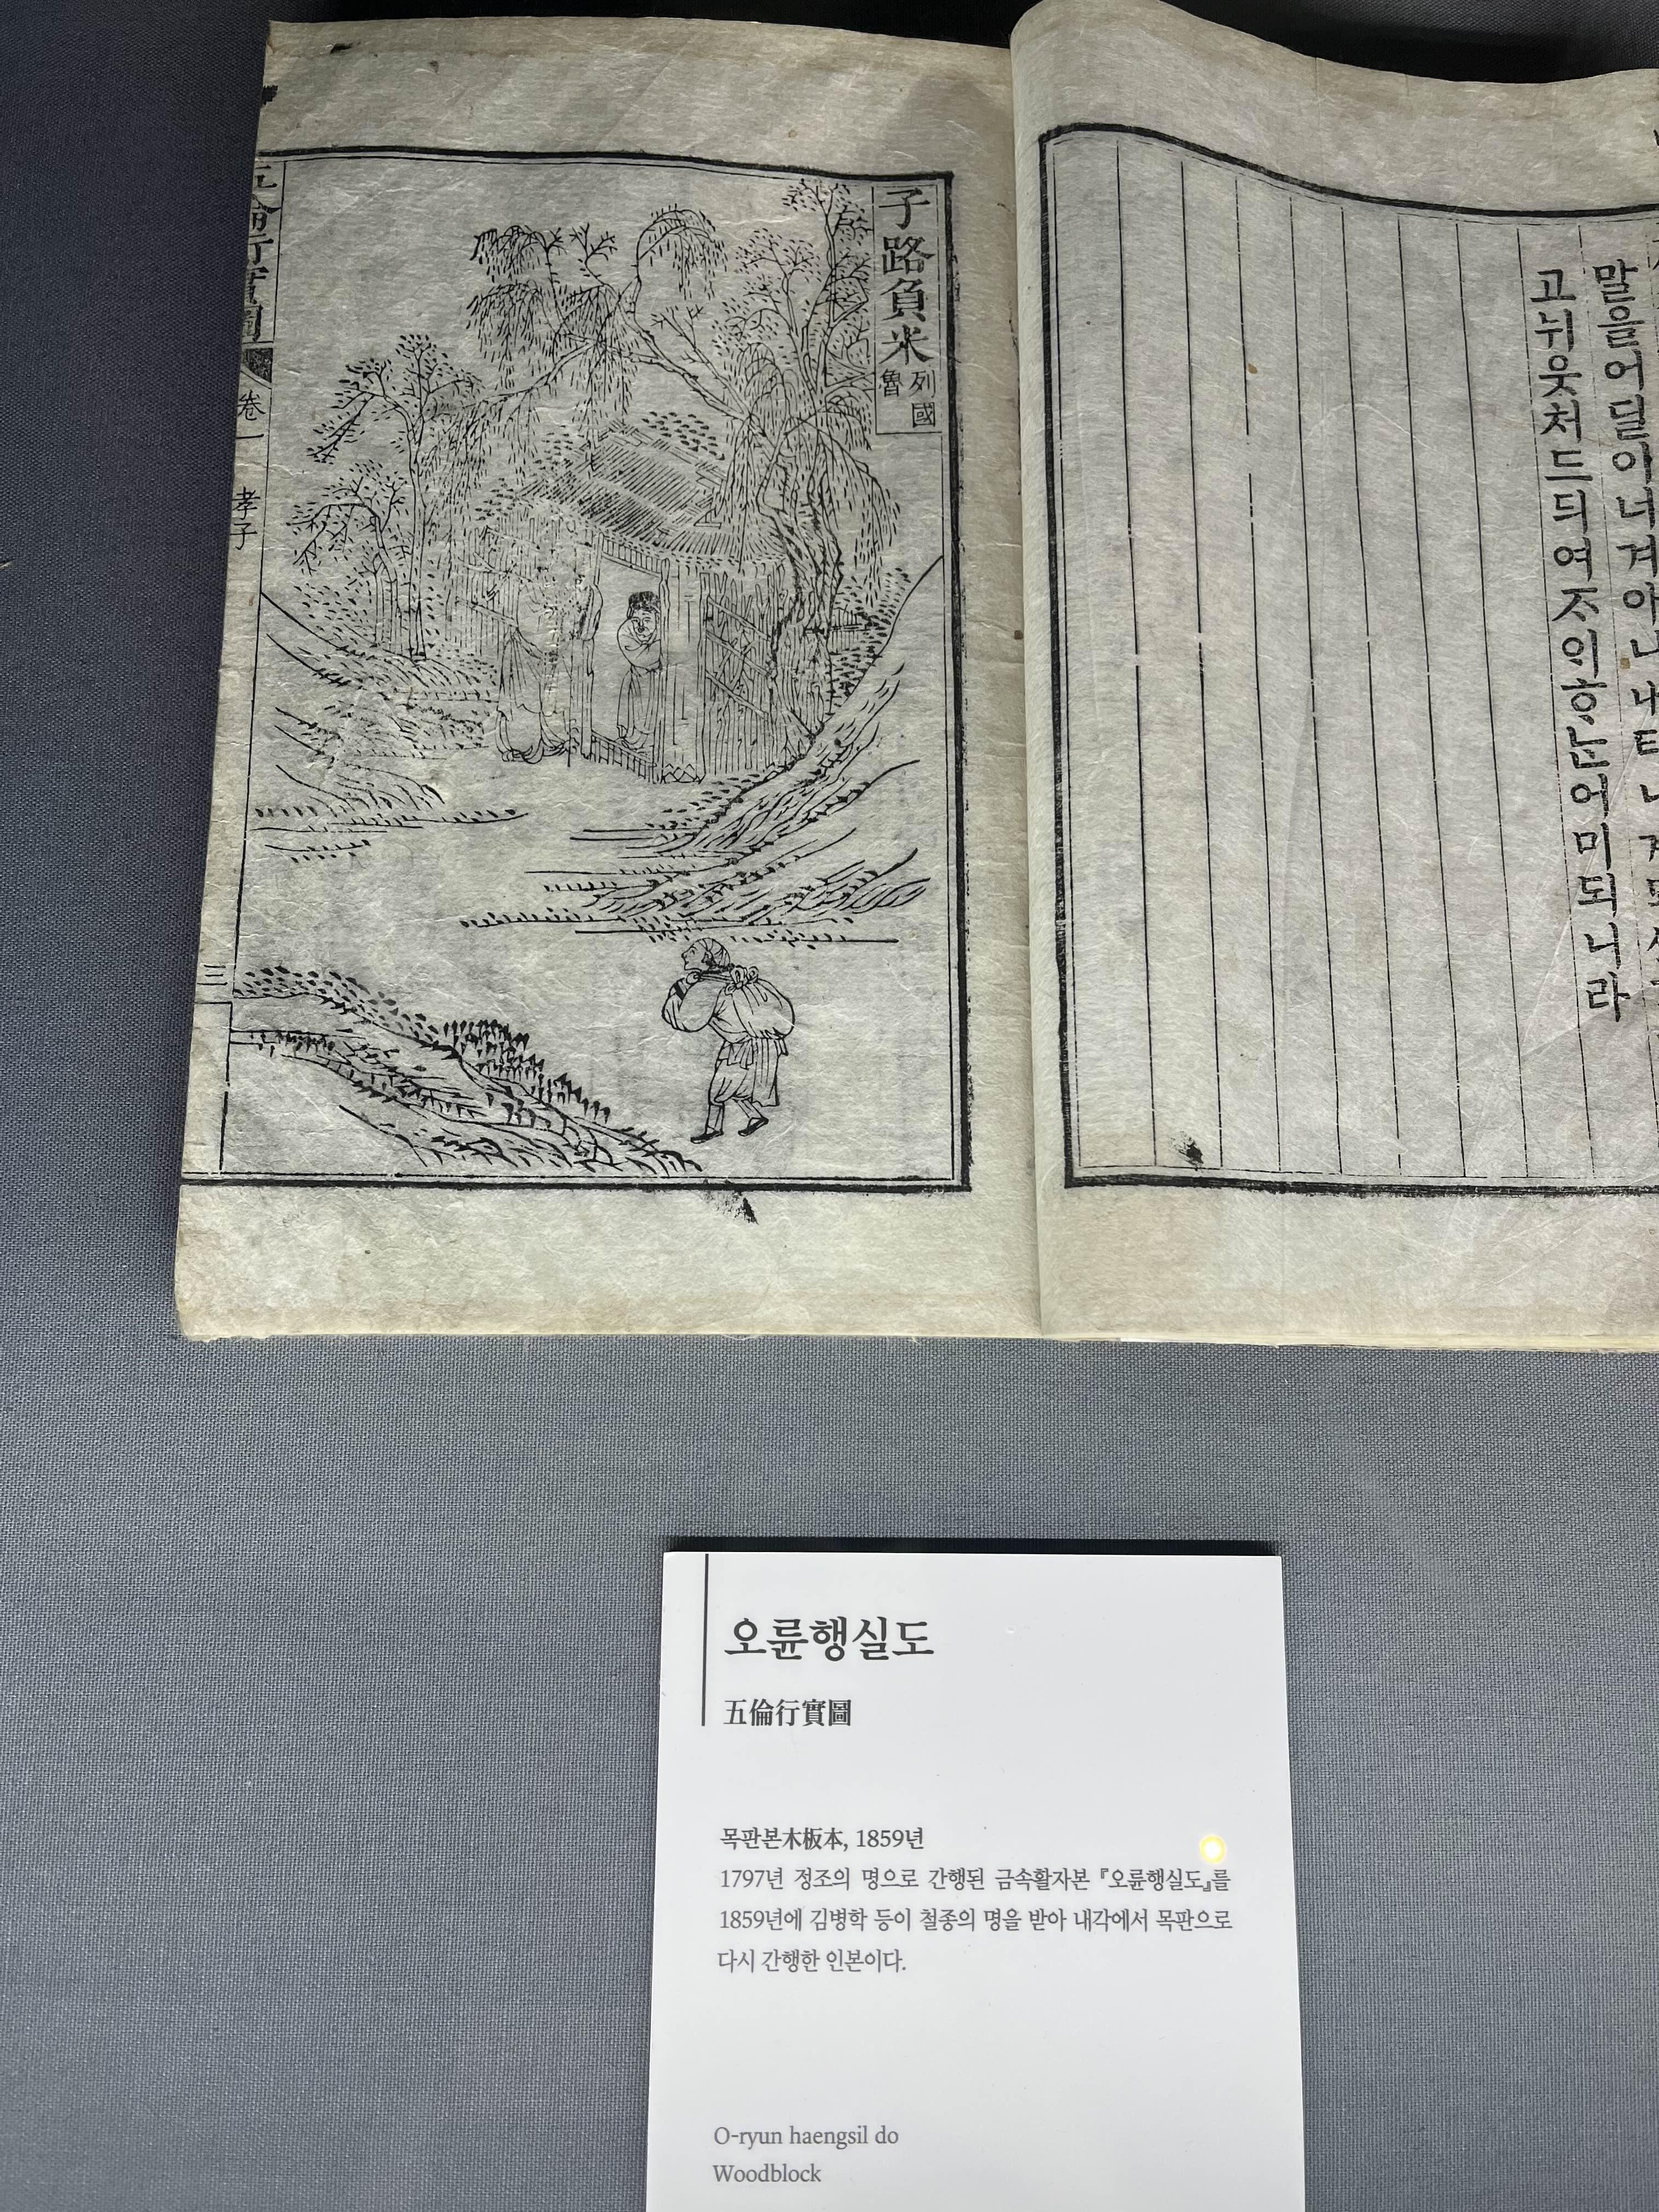 子路負米
列國
魯
五倫行實圖
卷一
孝子
三
말을어딜이너겨아니내티니
고뉘웃처드듸여ᄌᆞ인ᄒᆞᆫ어미되니라
오륜행실도
五倫行實圖
목판본木板本, 1859년
1797년 정조의 명으로 간행된 금속활자본 『오륜행실도』를
1859년에 김병학 등이 철종의 명을 받아 내각에서 목판으로
다시 간행한 인본이다.
O-ryun haengsil do
Woodblock